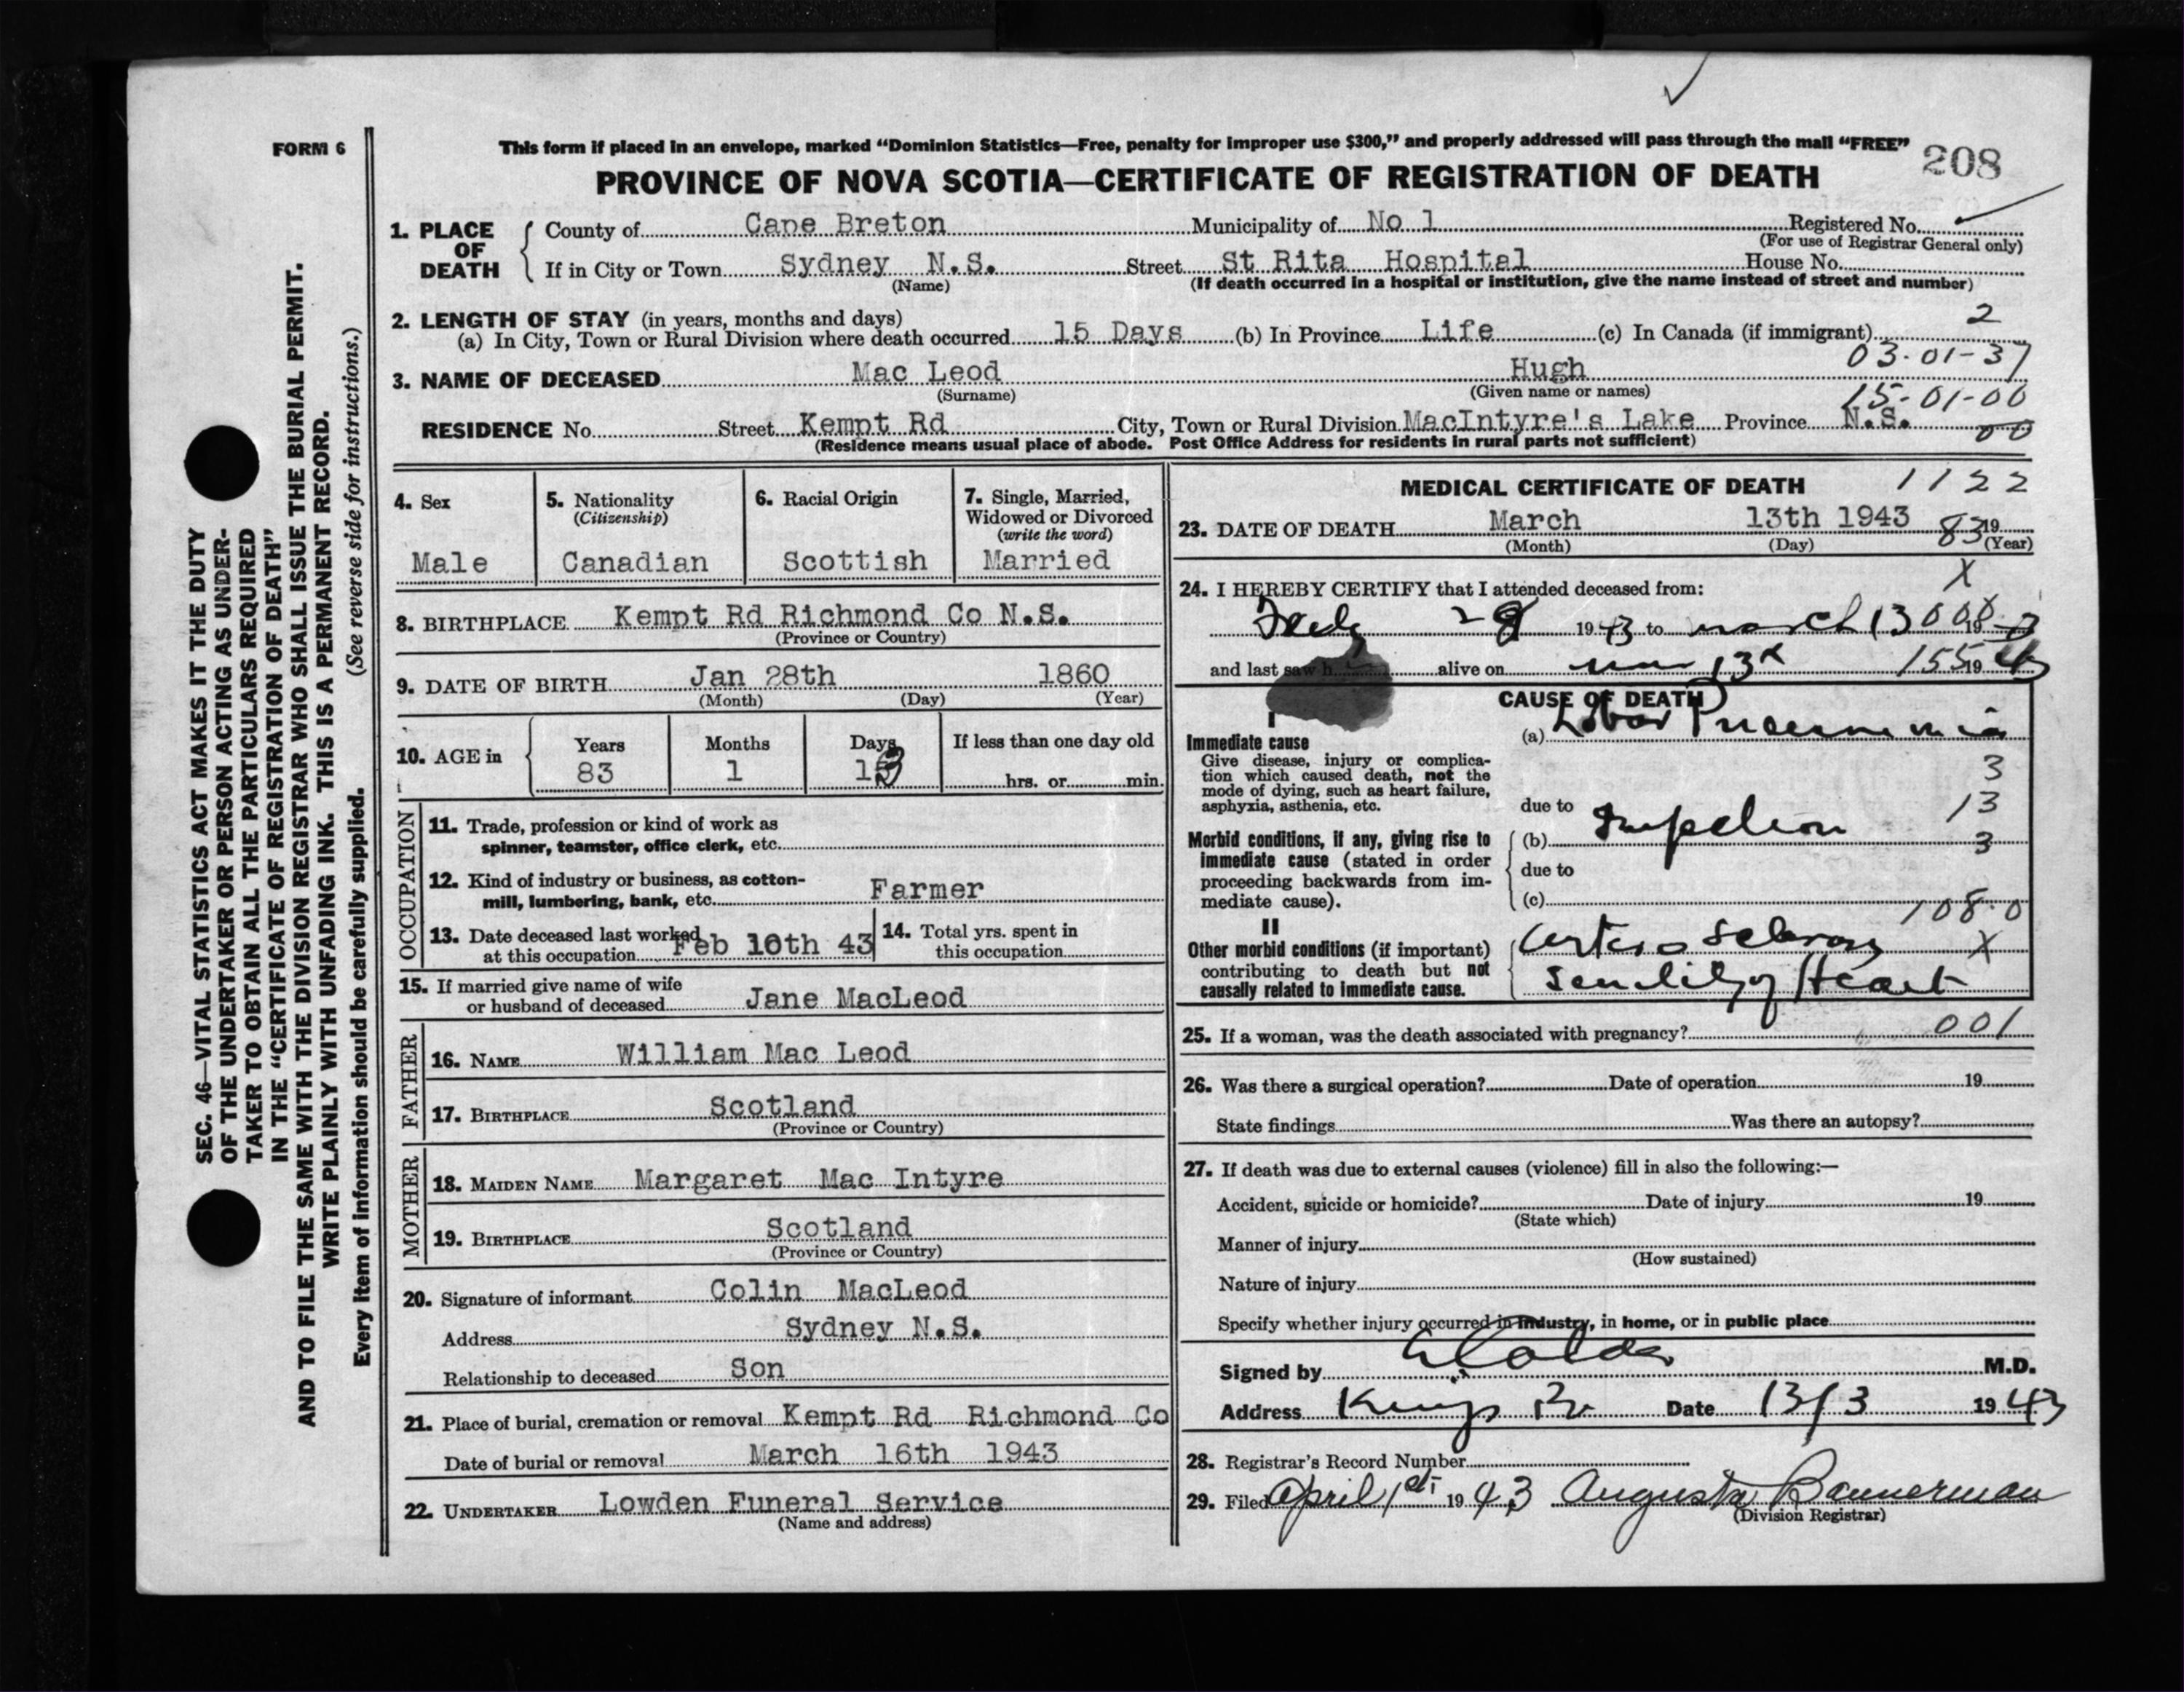 FORM 6
This form if placed in an envelope, marked "Dominion Statistics—Free, penalty for improper use $300," and properly addressed will pass through the mail "FREE"
208
PROVINCE OF NOVA SCOTIA—CERTIFICATE OF REGISTRATION OF DEATH
1. PLACE OF DEATH
County of Cape Breton Municipality of No 1 Registered No.
(For use of Registrar General only)
If in City or Town Sydney N.S. Street St Rita Hospital House No.
(Name) (If death occurred in a hospital or institution, give the name instead of street and number)
2. LENGTH OF STAY (in years, months and days)
(a) In City, Town or Rural Division where death occurred 15 Days (b) In Province Life (c) In Canada (if immigrant) 2
03-01-37
3. NAME OF DECEASED Mac Leod Hugh
(Surname) (Given name or names) 15-01-00
RESIDENCE No. Street Kempt Rd City, Town or Rural Division MacIntyre's Lake Province N.S. 00
(Residence means usual place of abode. Post Office Address for residents in rural parts not sufficient)
4. Sex
Male
5. Nationality
(Citizenship)
Canadian
6. Racial Origin
Scottish
7. Single, Married,
Widowed or Divorced
(write the word)
Married
8. BIRTHPLACE Kempt Rd Richmond Co N.S.
(Province or Country)
9. DATE OF BIRTH Jan 28th 1860
(Month) (Day) (Year)
10. AGE in
Years Months Days If less than one day old
83 1 13 hrs. or min.
OCCUPATION
11. Trade, profession or kind of work as
spinner, teamster, office clerk, etc.
12. Kind of industry or business, as cotton-
mill, lumbering, bank, etc. Farmer
13. Date deceased last worked
at this occupation Feb 10th 43
14. Total yrs. spent in
this occupation
15. If married give name of wife
or husband of deceased Jane MacLeod
FATHER
16. NAME William Mac Leod
17. BIRTHPLACE Scotland
(Province or Country)
MOTHER
18. MAIDEN NAME Margaret Mac Intyre
19. BIRTHPLACE Scotland
(Province or Country)
20. Signature of informant Colin MacLeod
Address Sydney N.S.
Relationship to deceased Son
21. Place of burial, cremation or removal Kempt Rd Richmond Co
Date of burial or removal March 16th 1943
22. UNDERTAKER Lowden Funeral Service
(Name and address)
MEDICAL CERTIFICATE OF DEATH 1122
23. DATE OF DEATH March 13th 1943 83 19
(Month) (Day) (Year)
X
24. I HEREBY CERTIFY that I attended deceased from:
28 1943 to march 13 19
and last saw h alive on 13 155 19 43
CAUSE OF DEATH
I
Immediate cause
Give disease, injury or complica-
tion which caused death, not the
mode of dying, such as heart failure,
asphyxia, asthenia, etc.
(a) Lobar Pneumonia
3
due to 13
Morbid conditions, if any, giving rise to
immediate cause (stated in order
proceeding backwards from im-
mediate cause).
(b) Infection 3
due to
(c)
108.0
II
Other morbid conditions (if important)
contributing to death but not
causally related to immediate cause.
Arterio Sclerosis X
Senility of Heart
25. If a woman, was the death associated with pregnancy? 001
26. Was there a surgical operation? Date of operation 19
State findings Was there an autopsy?
27. If death was due to external causes (violence) fill in also the following:—
Accident, suicide or homicide? Date of injury 19
(State which)
Manner of injury
(How sustained)
Nature of injury
Specify whether injury occurred in industry, in home, or in public place
Signed by M.D.
Address Date 13/3 1943
28. Registrar's Record Number
29. Filed April 1st 1943 Augusta Bannerman
(Division Registrar)
SEC. 46—VITAL STATISTICS ACT MAKES IT THE DUTY
OF THE UNDERTAKER OR PERSON ACTING AS UNDER-
TAKER TO OBTAIN ALL THE PARTICULARS REQUIRED
IN THE "CERTIFICATE OF REGISTRATION OF DEATH"
AND TO FILE THE SAME WITH THE DIVISION REGISTRAR WHO SHALL ISSUE THE BURIAL PERMIT.
WRITE PLAINLY WITH UNFADING INK. THIS IS A PERMANENT RECORD.
Every item of information should be carefully supplied. (See reverse side for instructions.)